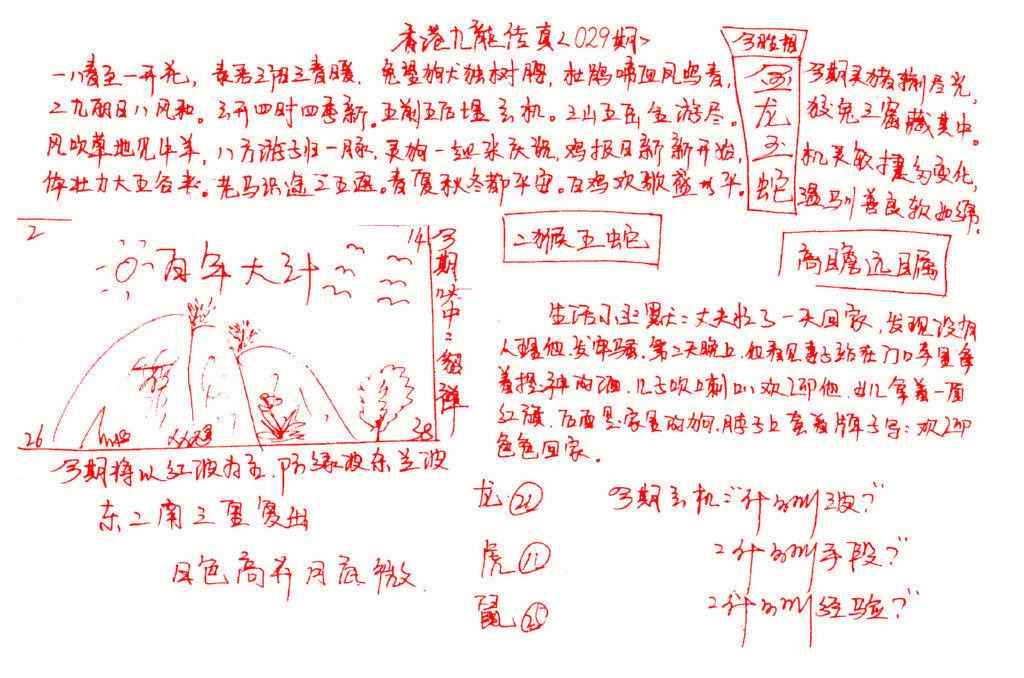 香港九龍传真<029期>
一八春至一开花，春若三阳三春暖，兔望狗犬独树腰，杜鹃啼血凤鸣春，
二九朝日八风和。玄开四时四季新。五前五后埋玄机。三山五岳全游尽。
风吹草地见牛羊，八方游子归一脉，灵狗一起来庆祝，鸡报日新新开始，
体壮力大五谷丰。老马识途二五遇。春夏秋冬都平安。百鸡欢歌
今期灵猪捌尽光，
狡兔三窟藏其中。
机灵敏捷多变化，
温驯善良软如绵。
龙
玉
蛇
二猴五蛇
高瞻远瞩
2
14
百年大计
26
38
今期
中：
生活小幽默：丈夫忙了一天回家，发现没有
人理他，发牢骚。第二天晚上，他看见妻子站在门口手里拿
着提神的酒，儿子吹喇叭欢迎他，女儿拿着一面
红旗，后面是家里的狗，脖子上套着牌子写：欢迎
爸爸回家。
今期将以红波为主，防绿波东兰波
东二南三里寻出
日色高升月底微
龙
虎 11
鼠
今期玄机："什么叫 ?"
"什么叫手段?"
"什么叫经验?"